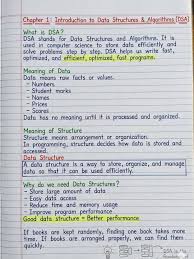 Chapter 1 : Introduction to Data Structures & Algorithms (DSA)
What is DSA?
DSA stands for Data Structures and Algorithms. It is
used in computer science to store data efficiently and
solve problems step by step. DSA helps us write fast,
optimized, and efficient, optimized, fast programs.
Meaning of Data
Data means raw facts or values.
- Numbers
- Student marks
- Names
- Prices
- Scores
Data has no meaning until it is processed and organized.
Meaning of Structure
Structure means arrangement or organization.
In programming, structure decides how data is stored and
accessed.
Data Structure
A data structure is a way to store, organize, and manage
data so that it can be used efficiently.
Why do we need Data Structures?
- Store large amount of data
- Easy data access
- Reduce time and memory usage
- Improve program performance
Good data structure = Better performance
If books are kept randomly, finding one book takes more
time. If books are arranged properly, we can find them
quickly.